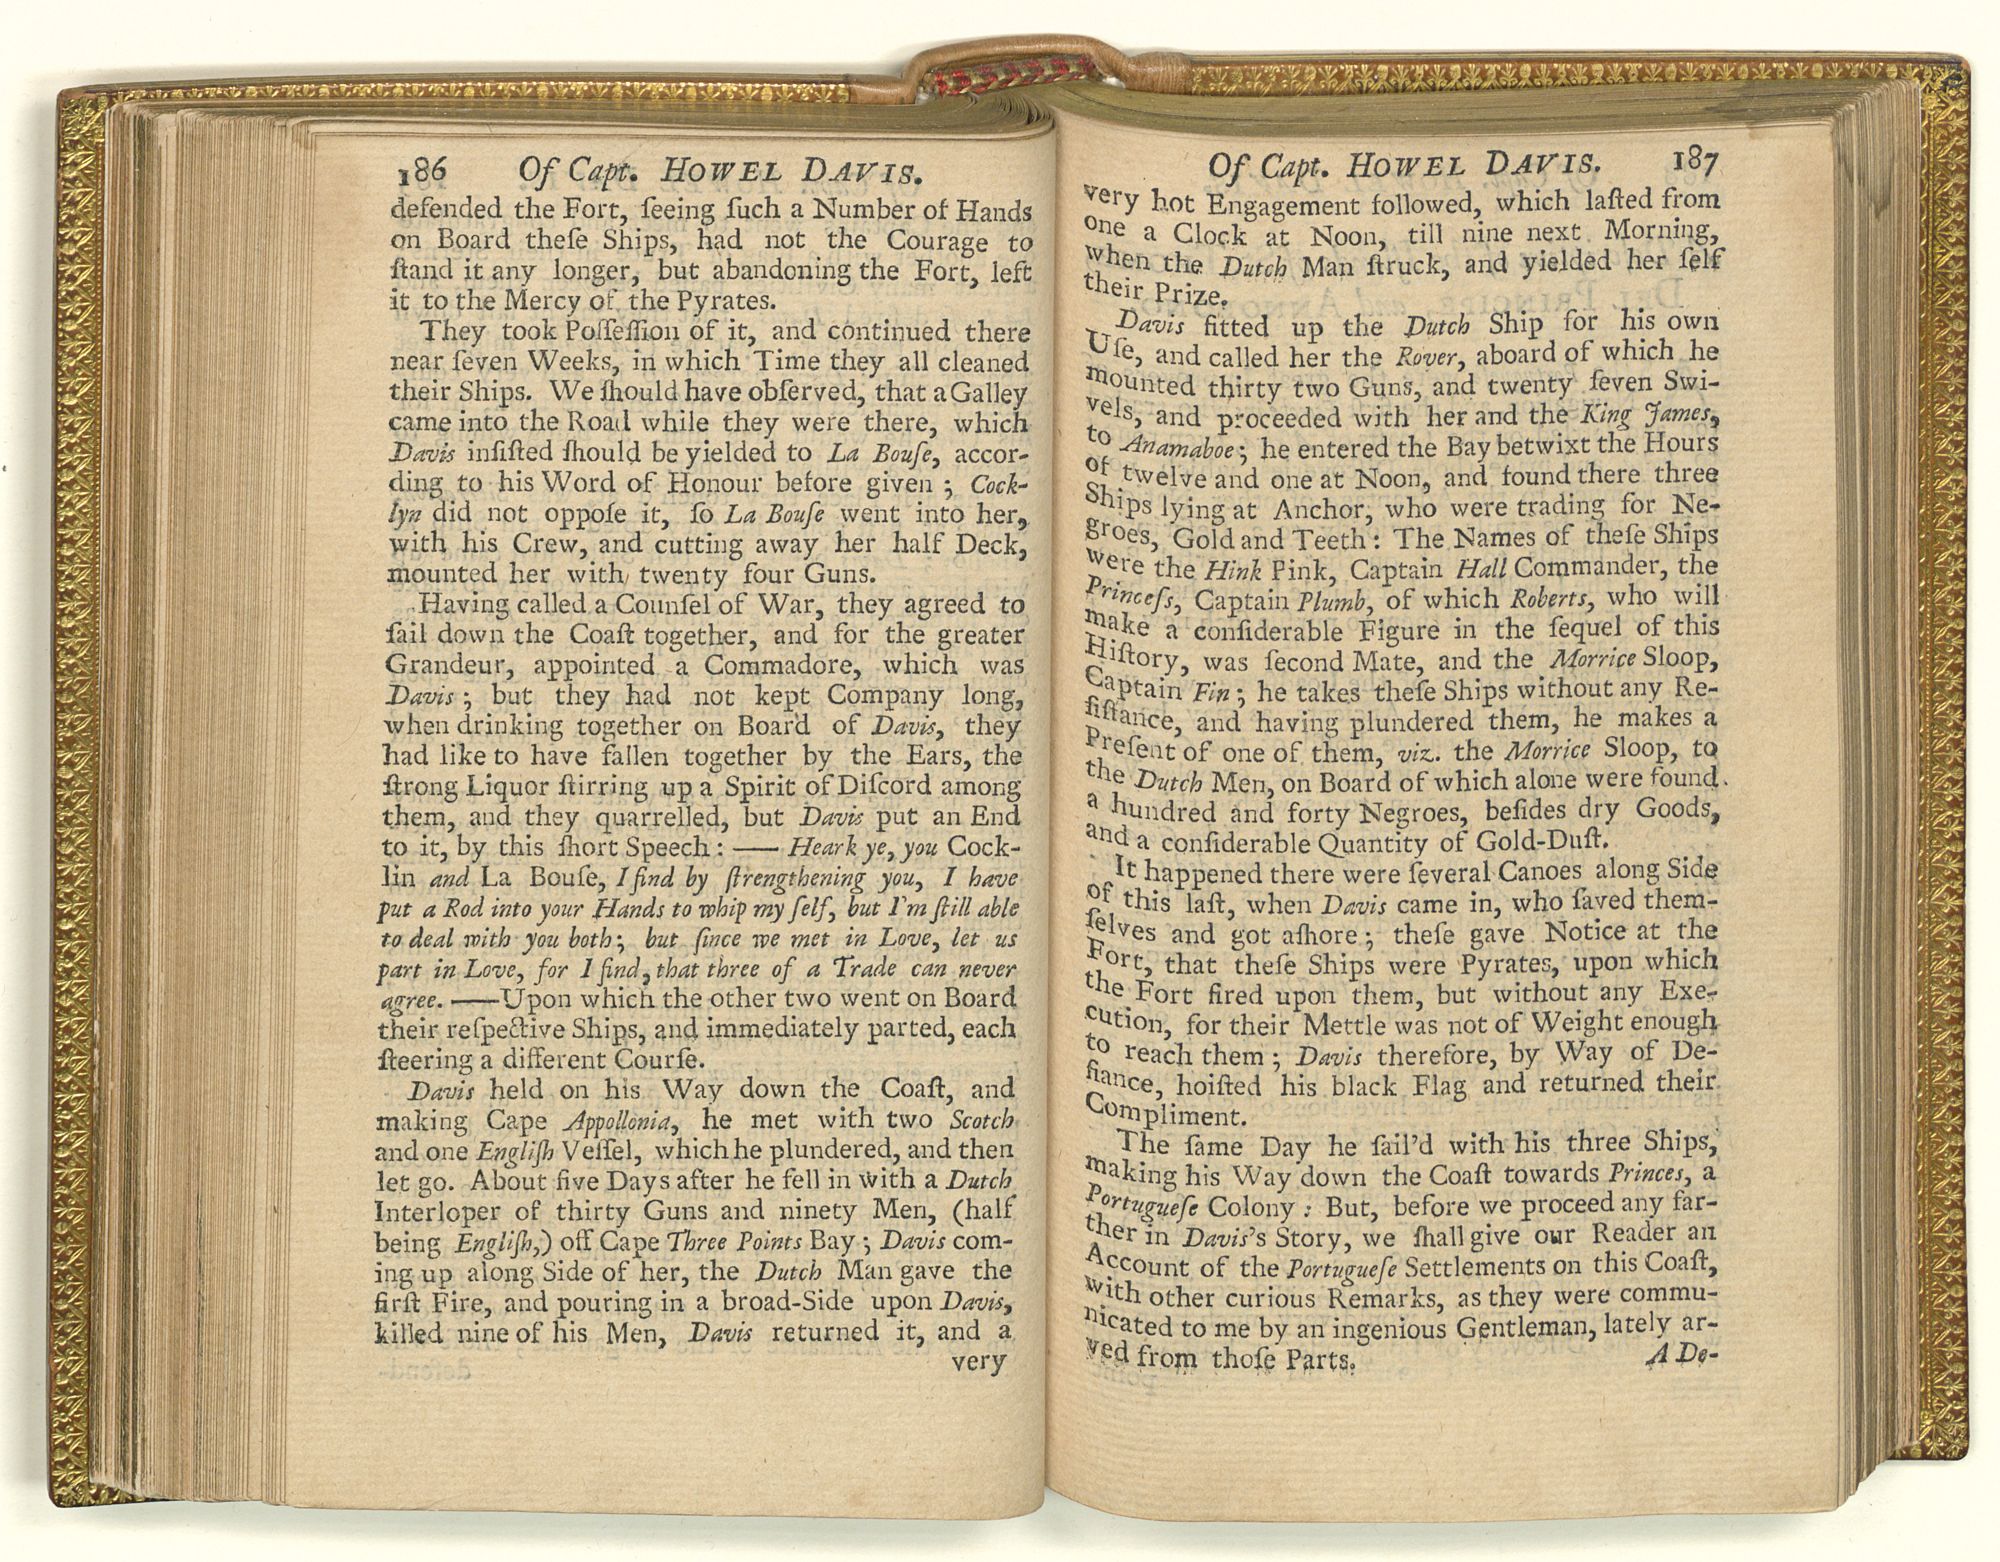 186 Of Capt. HOWEL DAVIS.
defended the Fort, ſeeing ſuch a Number of Hands
on Board theſe Ships, had not the Courage to
ſtand it any longer, but abandoning the Fort, left
it to the Mercy of the Pyrates.
They took Poſſeſſion of it, and continued there
near ſeven Weeks, in which Time they all cleaned
their Ships. We ſhould have obſerved, that a Galley
came into the Road while they were there, which
Davis inſiſted ſhould be yielded to La Bouſe, accor-
ding to his Word of Honour before given; Cock-
lyn did not oppoſe it, ſo La Bouſe went into her,
with his Crew, and cutting away her half Deck,
mounted her with twenty four Guns.
Having called a Counſel of War, they agreed to
ſail down the Coaſt together, and for the greater
Grandeur, appointed a Commadore, which was
Davis; but they had not kept Company long,
when drinking together on Board of Davis, they
had like to have fallen together by the Ears, the
ſtrong Liquor ſtirring up a Spirit of Diſcord among
them, and they quarrelled, but Davis put an End
to it, by this ſhort Speech: — Heark ye, you Cock-
lin and La Bouſe, I find by ſtrengthening you, I have
put a Rod into your Hands to whip my ſelf, but I'm ſtill able
to deal with you both; but ſince we met in Love, let us
part in Love, for I find, that three of a Trade can never
agree. — Upon which the other two went on Board
their reſpective Ships, and immediately parted, each
ſteering a different Courſe.
Davis held on his Way down the Coaſt, and
making Cape Appollonia, he met with two Scotch
and one Engliſh Veſſel, which he plundered, and then
let go. About five Days after he fell in with a Dutch
Interloper of thirty Guns and ninety Men, (half
being Engliſh,) off Cape Three Points Bay; Davis com-
ing up along Side of her, the Dutch Man gave the
firſt Fire, and pouring in a broad-Side upon Davis,
killed nine of his Men, Davis returned it, and a
very
Of Capt. HOWEL DAVIS. 187
very hot Engagement followed, which laſted from
one a Clock at Noon, till nine next Morning,
when the Dutch Man ſtruck, and yielded her ſelf
their Prize.
Davis fitted up the Dutch Ship for his own
Uſe, and called her the Rover, aboard of which he
mounted thirty two Guns, and twenty ſeven Swi-
vels, and proceeded with her and the King James,
to Anamaboe; he entered the Bay betwixt the Hours
of twelve and one at Noon, and found there three
Ships lying at Anchor, who were trading for Ne-
groes, Gold and Teeth: The Names of theſe Ships
were the Hink Pink, Captain Hall Commander, the
Princeſs, Captain Plumb, of which Roberts, who will
make a conſiderable Figure in the ſequel of this
Hiſtory, was ſecond Mate, and the Morrice Sloop,
Captain Fin; he takes theſe Ships without any Re-
ſiſtance, and having plundered them, he makes a
Preſent of one of them, viz. the Morrice Sloop, to
the Dutch Men, on Board of which alone were found
a hundred and forty Negroes, beſides dry Goods,
and a conſiderable Quantity of Gold-Duſt.
It happened there were ſeveral Canoes along Side
of this laſt, when Davis came in, who ſaved them-
ſelves and got aſhore; theſe gave Notice at the
Fort, that theſe Ships were Pyrates, upon which
the Fort fired upon them, but without any Exe-
cution, for their Mettle was not of Weight enough
to reach them; Davis therefore, by Way of De-
fiance, hoiſted his black Flag and returned their
Compliment.
The ſame Day he ſail'd with his three Ships,
making his Way down the Coaſt towards Princes, a
Portugueſe Colony: But, before we proceed any far-
ther in Davis's Story, we ſhall give our Reader an
Account of the Portugueſe Settlements on this Coaſt,
with other curious Remarks, as they were commu-
nicated to me by an ingenious Gentleman, lately ar-
ved from thoſe Parts.
A De-